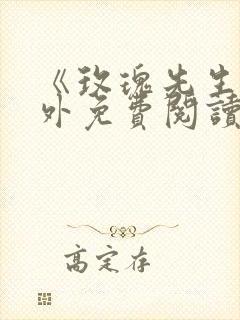 《玫瑰先生
外免費閱讀
高定存